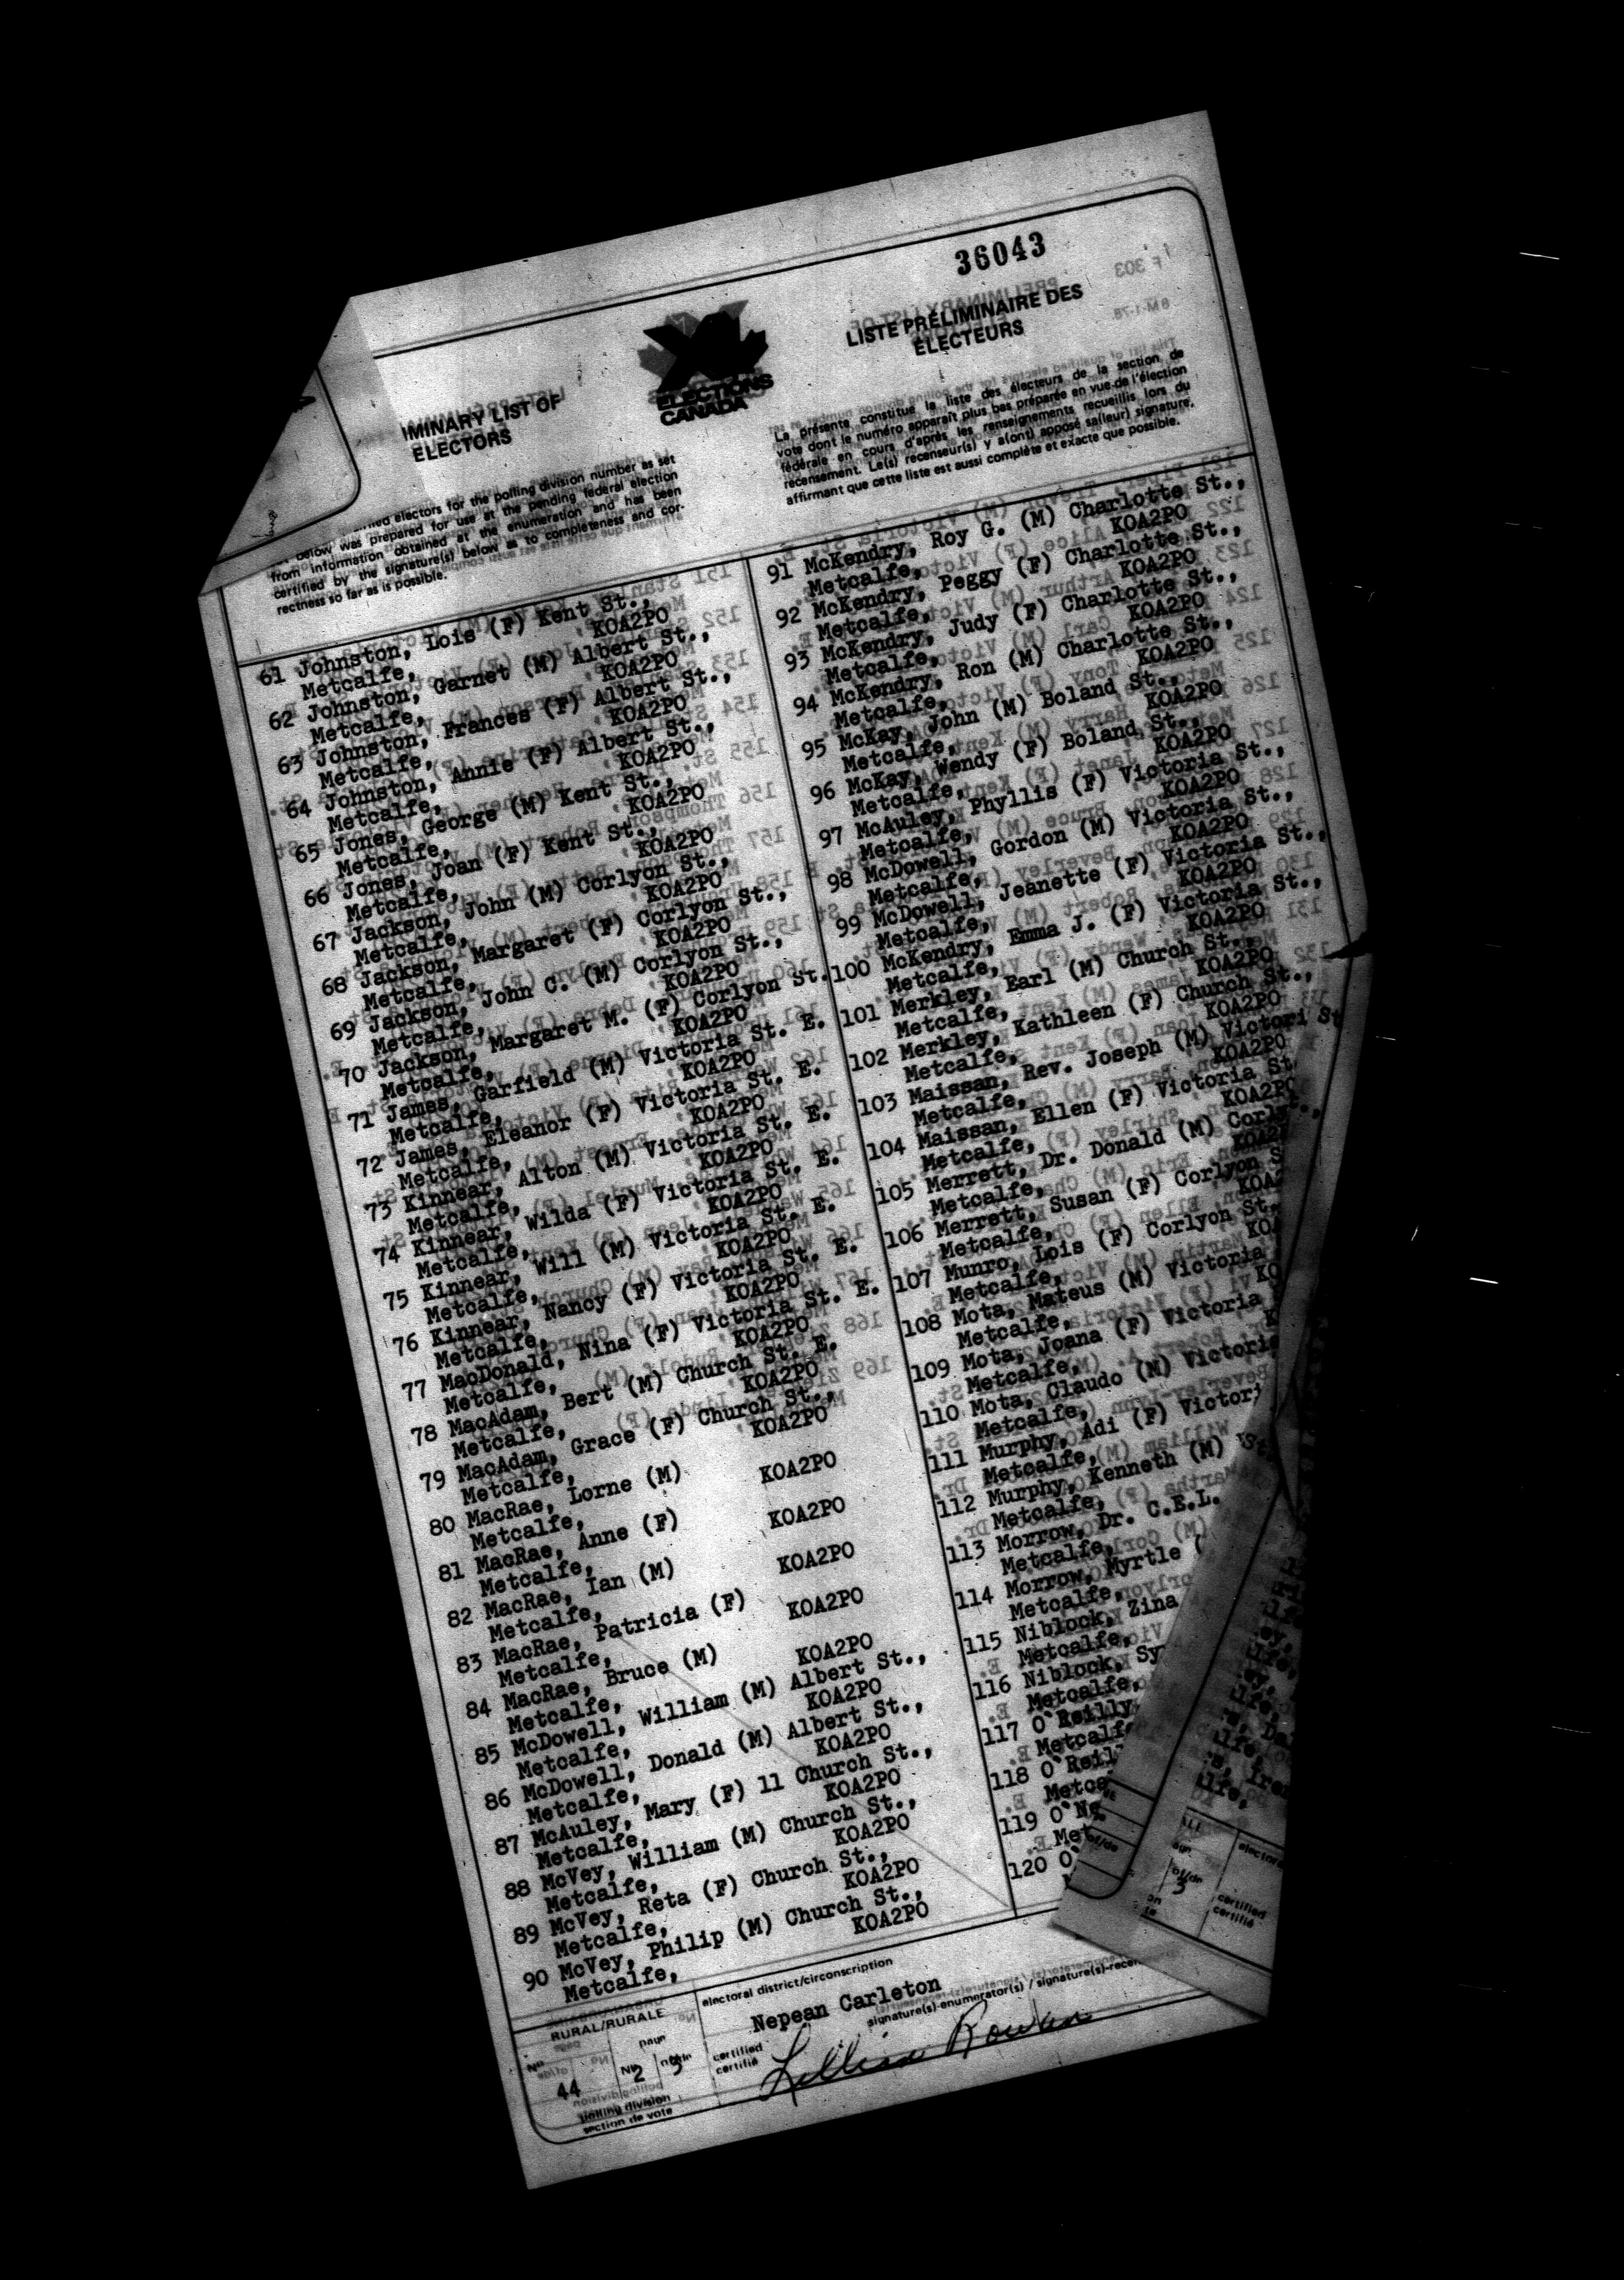 36043
IMINARY LIST OF
ELECTORS
ELECTIONS
CANADA
LISTE PRÉLIMINAIRE DES
ÉLECTEURS
electors for the polling division number as set
below was prepared for use at the pending federal election
from information obtained at the enumeration and has been
certified by the signature(s) below as to completeness and cor-
rectness so far as is possible.
La présente constitue la liste des électeurs de la section de
vote dont le numéro apparaît plus bas préparée en vue de l'élection
fédérale en cours d'après les renseignements recueillis lors du
recensement. Le(s) recenseur(s) y a(ont) apposé sa(leur) signature,
affirmant que cette liste est aussi complète et exacte que possible.
61 Johnston, Lois (F) Kent St.,
Metcalfe, KOA2PO
62 Johnston, Garnet (M) Albert St.,
Metcalfe, KOA2PO
63 Johnston, Frances (F) Albert St.,
Metcalfe, KOA2PO
64 Johnston, Annie (F) Albert St.,
Metcalfe, KOA2PO
65 Jones, George (M) Kent St.,
Metcalfe, KOA2PO
66 Jones, Joan (F) Kent St.,
Metcalfe, KOA2PO
67 Jackson, John (M) Corlyon St.,
Metcalfe, KOA2PO
68 Jackson, Margaret (F) Corlyon St.,
Metcalfe, KOA2PO
69 Jackson, John C. (M) Corlyon St.,
Metcalfe, KOA2PO
70 Jackson, Margaret M. (F) Corlyon St.
Metcalfe, KOA2PO
71 James, Garfield (M) Victoria St. E.
Metcalfe, KOA2PO
72 James, Eleanor (F) Victoria St. E.
Metcalfe, KOA2PO
73 Kinnear, Alton (M) Victoria St. E.
Metcalfe, KOA2PO
74 Kinnear, Wilda (F) Victoria St. E.
Metcalfe, KOA2PO
75 Kinnear, Will (M) Victoria St. E.
Metcalfe, KOA2PO
76 Kinnear, Nancy (F) Victoria St. E.
Metcalfe, KOA2PO
77 MacDonald, Nina (F) Victoria St. E.
Metcalfe, KOA2PO
78 MacAdam, Bert (M) Church St. E.
Metcalfe, KOA2PO
79 MacAdam, Grace (F) Church St.,
Metcalfe, KOA2PO
80 MacRae, Lorne (M)
Metcalfe, KOA2PO
81 MacRae, Anne (F)
Metcalfe, KOA2PO
82 MacRae, Ian (M)
Metcalfe, KOA2PO
83 MacRae, Patricia (F)
Metcalfe, KOA2PO
84 MacRae, Bruce (M)
Metcalfe, KOA2PO
85 McDowell, William (M) Albert St.,
Metcalfe, KOA2PO
86 McDowell, Donald (M) Albert St.,
Metcalfe, KOA2PO
87 McAuley, Mary (F) 11 Church St.,
Metcalfe, KOA2PO
88 McVey, William (M) Church St.,
Metcalfe, KOA2PO
89 McVey, Reta (F) Church St.,
Metcalfe, KOA2PO
90 McVey, Philip (M) Church St.,
Metcalfe, KOA2PO
91 McKendry, Roy G. (M) Charlotte St.,
Metcalfe, KOA2PO
92 McKendry, Peggy (F) Charlotte St.,
Metcalfe, KOA2PO
93 McKendry, Judy (F) Charlotte St.,
Metcalfe, KOA2PO
94 McKendry, Ron (M) Charlotte St.,
Metcalfe, KOA2PO
95 McKay, John (M) Boland St.,
Metcalfe, KOA2PO
96 McKay, Wendy (F) Boland St.,
Metcalfe, KOA2PO
97 McAuley, Phyllis (F) Victoria St.,
Metcalfe, KOA2PO
98 McDowell, Gordon (M) Victoria St.,
Metcalfe, KOA2PO
99 McDowell, Jeanette (F) Victoria St.,
Metcalfe, KOA2PO
100 McKendry, Emma J. (F) Victoria St.,
Metcalfe, KOA2PO
101 Merkley, Earl (M) Church St.,
Metcalfe, KOA2PO
102 Merkley, Kathleen (F) Church St.,
Metcalfe, KOA2PO
103 Maissan, Rev. Joseph (M) Victori St
Metcalfe, KOA2PO
104 Maissan, Ellen (F) Victoria St
Metcalfe, KOA2PO
105 Merrett, Dr. Donald (M) Corly
Metcalfe, KOA2
106 Merrett, Susan (F) Corlyon S
Metcalfe, KOA2
107 Munro, Lois (F) Corlyon St.
Metcalfe, KOA
108 Mota, Mateus (M) Victoria
Metcalfe, KO
109 Mota, Joana (F) Victoria
Metcalfe, K
110 Mota, Claudo (M) Victoria
Metcalfe,
111 Murphy, Adi (F) Victori
Metcalfe,
112 Murphy, Kenneth (M)
Metcalfe,
113 Morrow, Dr. C.E.L.
Metcalfe,
114 Morrow, Myrtle (
Metcalfe,
115 Niblock, Zina
Metcalfe,
116 Niblock, Sy
Metcalfe,
117 O'Reilly
Metcalfe
118 O'Reill
Metca
119 O'Ne
Met
120 O'
RURAL/RURALE
No
44
page
No 2
of/de 3
polling division
section de vote
electoral district/circonscription
Nepean Carleton
signature(s)-enumerator(s) / signature(s)-recen
certified
certifié
Lillian Rowan
of/de
3
certified
certifié